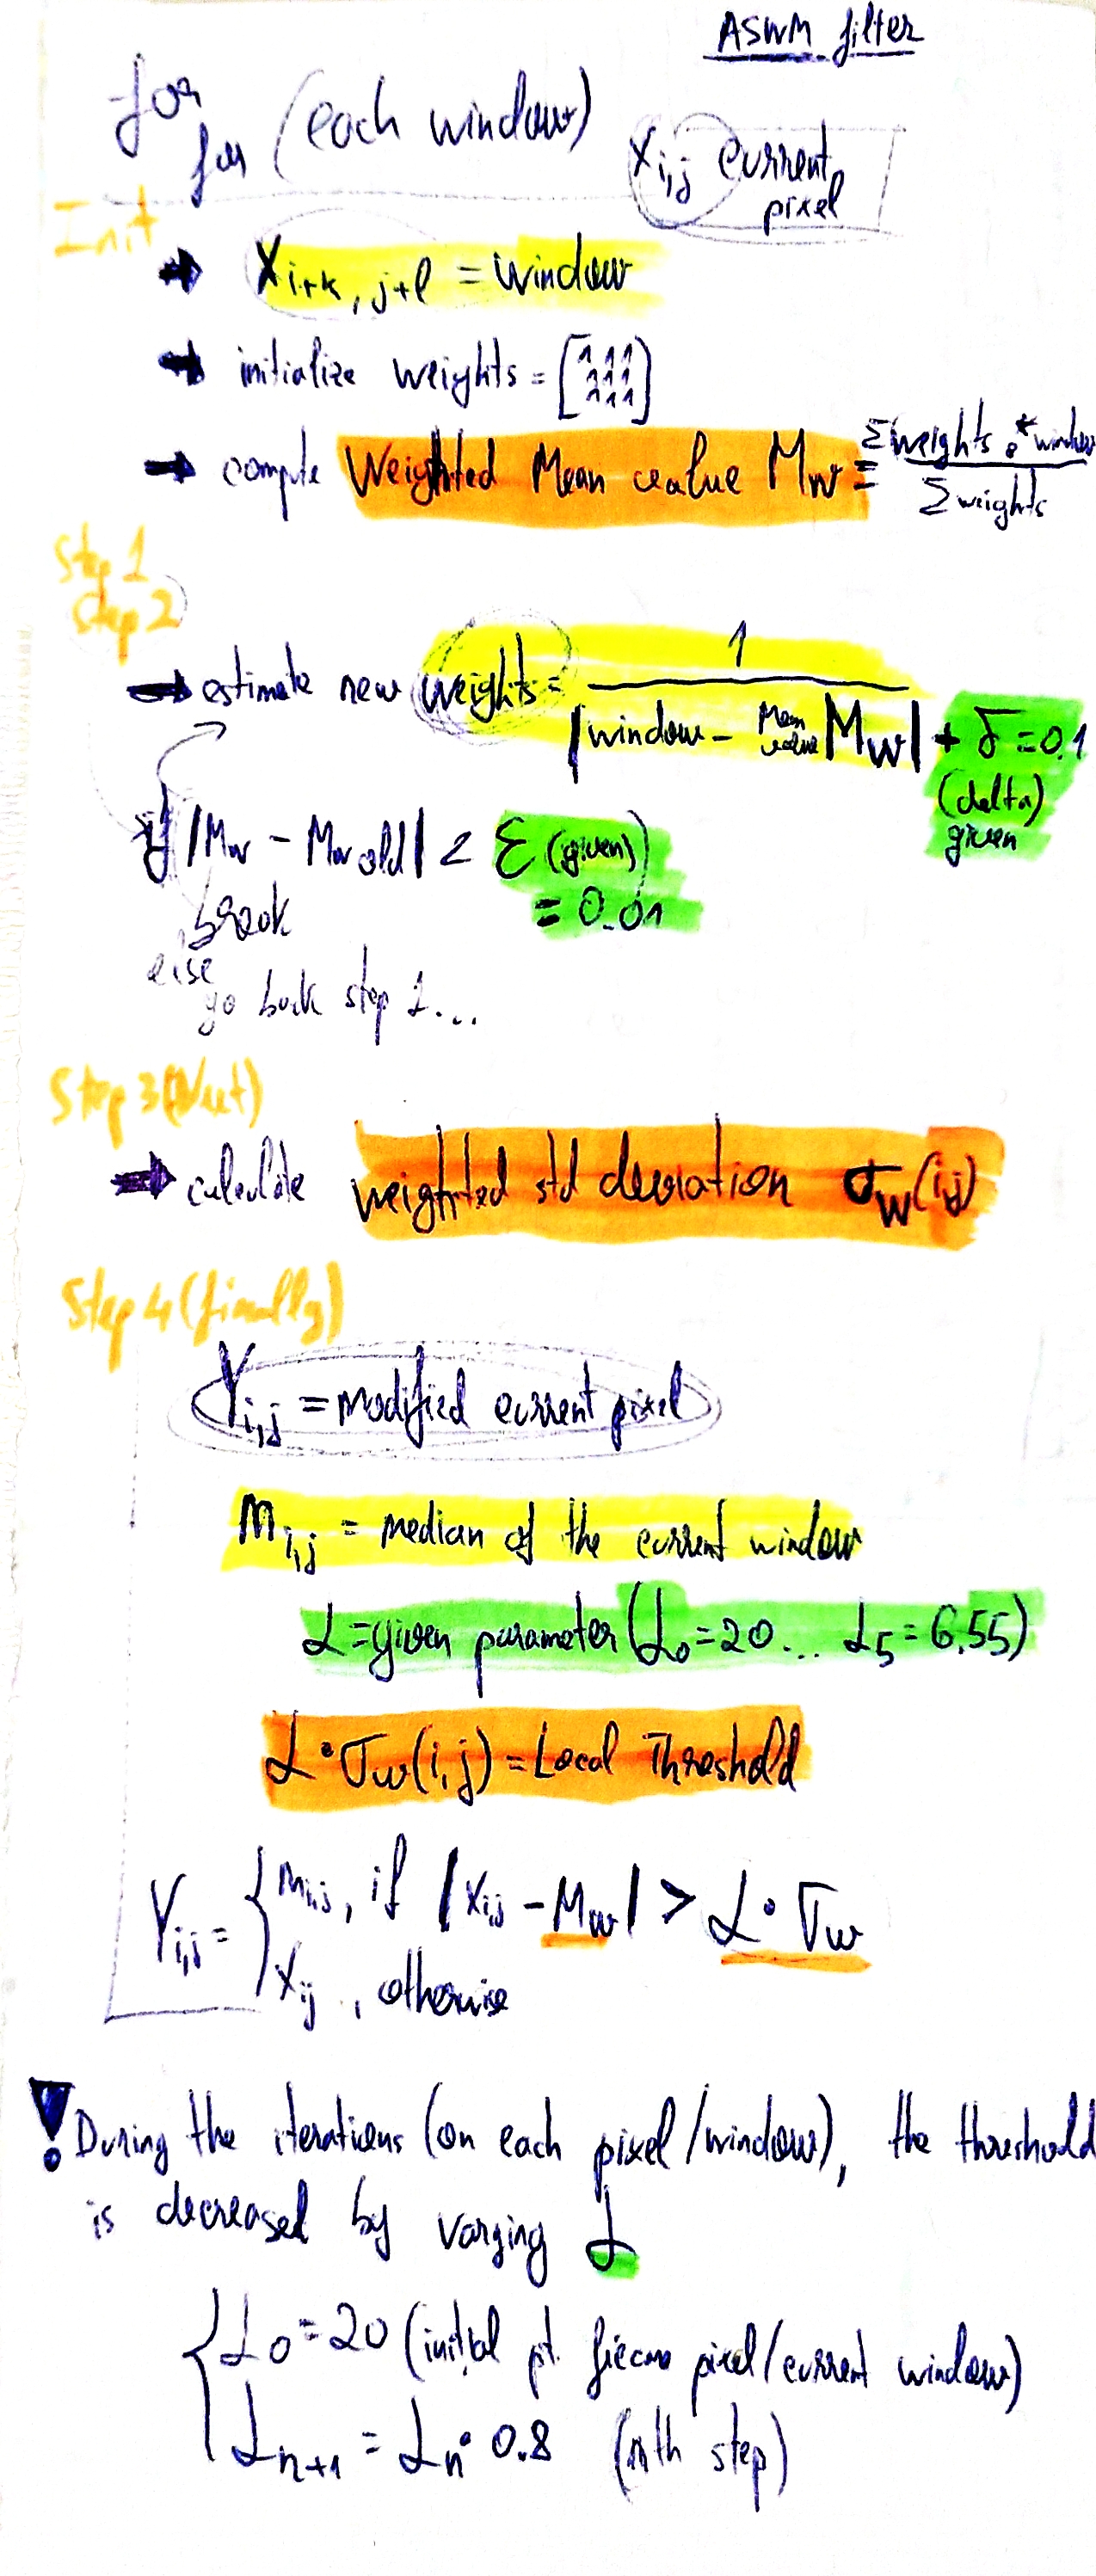 ASWM filter
for
for (each window)
Xi,j current
pixel
Init
→ Xi+k, j+l = window
→ initialize weights = [1 1 1
1 1 1
1 1 1]
→ compute Weighted Mean value Mw = Σ weights .* window
Σ weights
Step 1
Step 2
→ estimate new weights = 1
|window - Mean value Mw| + δ = 0.1
(delta)
given
if |Mw - Mw old| < ε (given)
= 0.01
break
else
go back step 1...
Step 3 (Next)
→ calculate weighted std deviation σw(i,j)
Step 4 (finally)
Yi,j = modified current pixel
mi,j = median of the current window
α = given parameter (α0 = 20... α5 = 6.55)
α · σw(i,j) = Local Threshold
Yi,j = { mi,j, if |Xij - Mw| > α · σw
Xij, otherwise
! During the iterations (on each pixel/window), the threshold
is decreased by varying α
{ α0 = 20 (initial pt. fiecare pixel/current window)
αn+1 = αn · 0.8 (nth step)